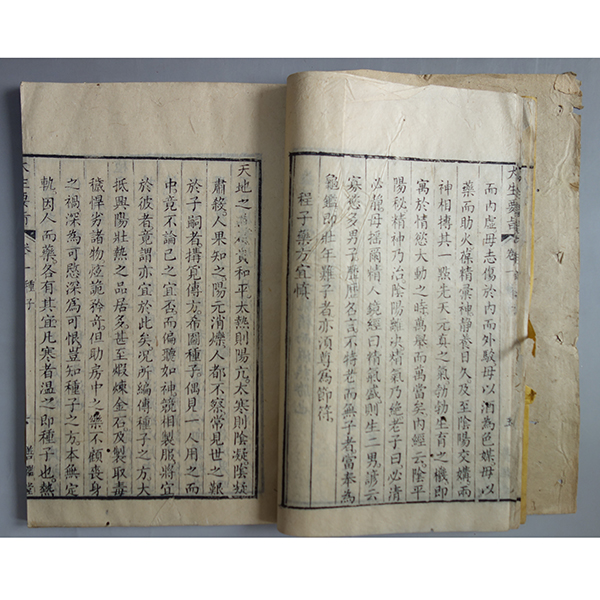 大生要旨
而內虛毋志傷於內而外駭毋以酒為色媒毋以
藥而助火葆精彙神靜養日久及至陰陽交媾兩
神相搏其一點先天元真之氣勃勃生育之機即
寓於情慾大動之時萬舉而萬當矣內經云陰平
陽秘精神乃治陰陽離決精氣乃絕老子曰必清
必靜毋搖爾精人鏡經曰精氣盛則生二男諺云
寡慾多男子歷歷名言不特老而無子者當奉為
龜鑑即壯年難子者亦須尊為節箴
種子藥方宜慎
天地之貴和平太熱則陽亢太寒則陰凝陰凝
肅殺人果知之陽元消爍人都不察常見世之艱
於子嗣者搆覓傳方希圖種子偶見一人用之
中竟不論己之宜否而偏聽如神競相製服將宜
於彼者竟謂亦宜於此矣況所編傳種子之方大
抵興陽壯熱之品居多甚至煅煉金石及製取毒
穢悍劣諸物炫詭矜奇但助房中之樂不顧喪身
之禍深為可愍深為可恨豈知種子之方本無定
軌因人而藥各有其宜凡寒者溫之即種子也熱
大生要旨 卷一 種子